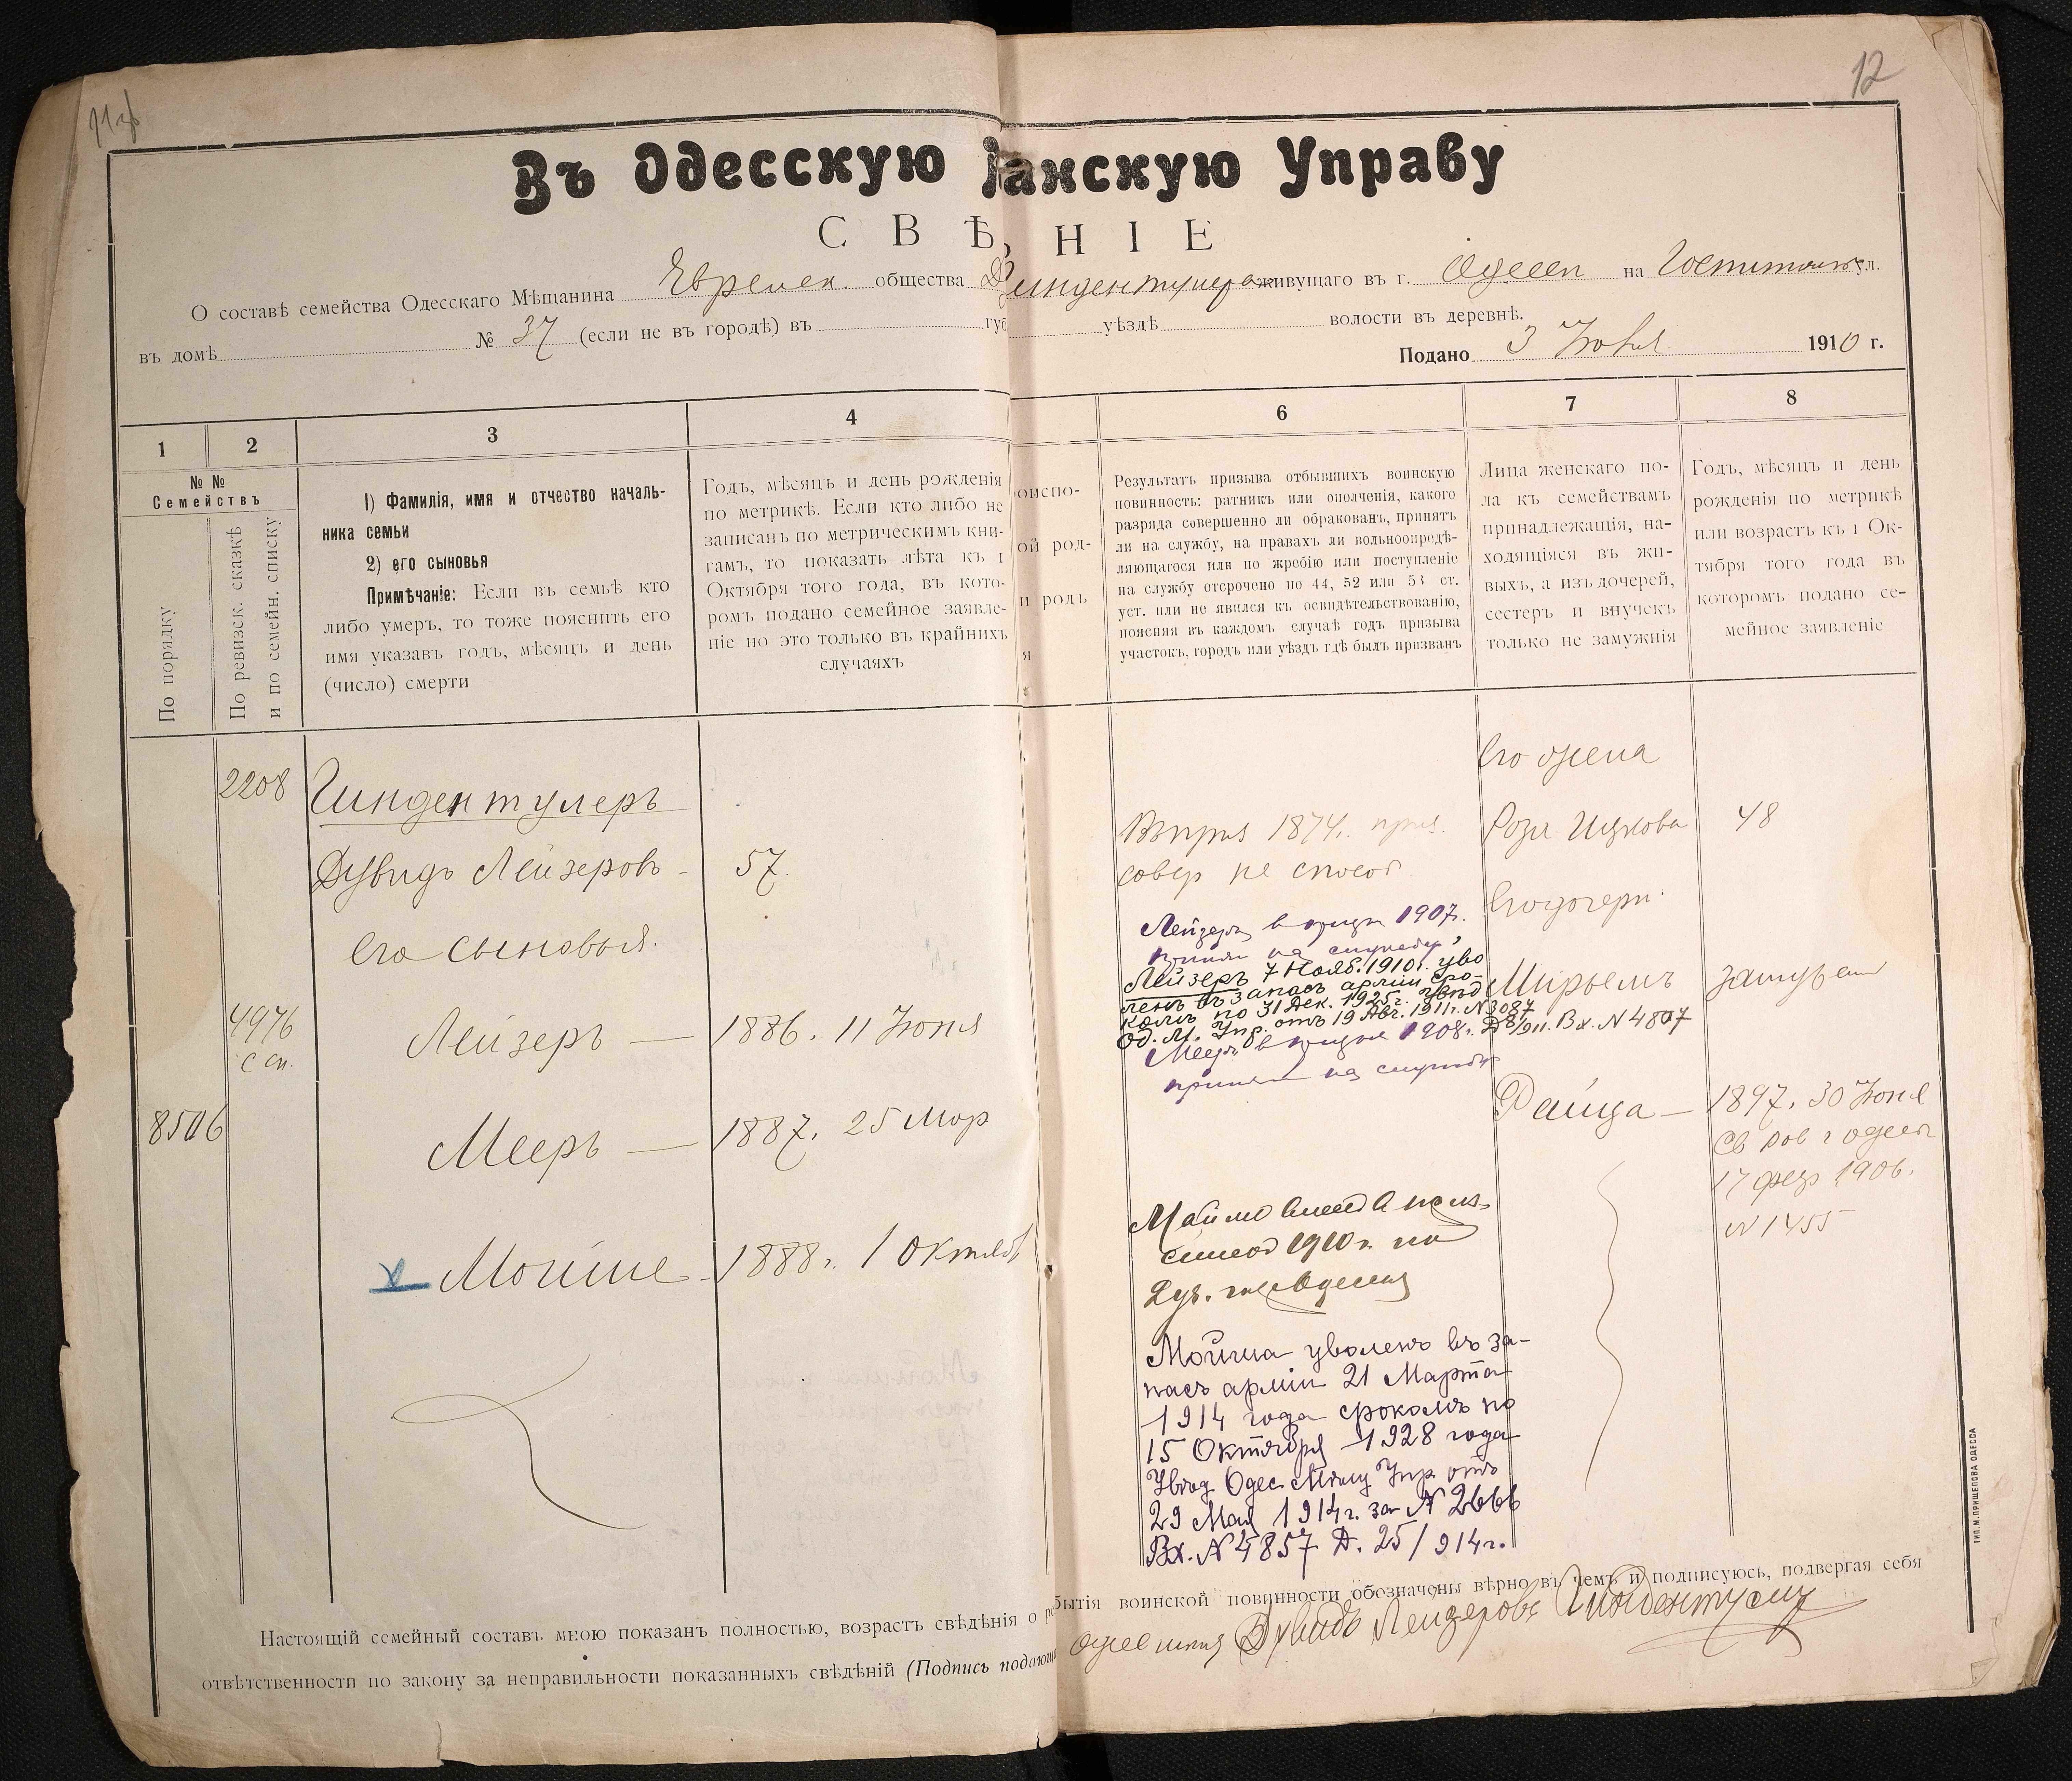 12
Въ Одесскую анскую Управу
СВѢ НІЕ
О составѣ семейства Одесскаго Мѣщанина Евреск. общества Гиндентулера живущаго въ г. Одессѣ на ул.
въ домѣ № 37 (если не въ городѣ) въ губ уѣздѣ волости въ деревнѣ.
Подано 3 Іюня 1910 г.
1 2 3 4 6 7 8
№ №
Семействъ
По порядку
По ревизск. сказкѣ
и по семейн. списку
1) Фамилія, имя и отчество началь-
ника семьи
2) его сыновья
Примѣчаніе: Если въ семьѣ кто
либо умеръ, то тоже пояснить его
имя указавъ годъ, мѣсяцъ и день
(число) смерти
Годъ, мѣсяцъ и день рожденія
по метрикѣ. Если кто либо не
записанъ по метрическимъ кни-
гамъ, то показать лѣта къ 1
Октября того года, въ кото-
ромъ подано семейное заявле-
ніе но это только въ крайнихъ
случаяхъ
оиспо-
ой род-
и родъ
я
Результатъ призыва отбывшихъ воинскую
повинность: ратникъ или ополченія, какого
разряда совершенно ли обракованъ, принятъ
ли на службу, на правахъ ли вольноопредѣ-
ляющагося или по жребію или поступленіе
на службу отсрочено по 44, 52 или 53 ст.
уст. или не явился къ освидѣтельствованію,
поясняя въ каждомъ случаѣ годъ призыва
участокъ, городъ или уѣздъ гдѣ былъ призванъ
Лица женскаго по-
ла къ семействамъ
принадлежащія, на-
ходящіяся въ жи-
выхъ, а изъ дочерей,
сестеръ и внучекъ
только не замужнія
Годъ, мѣсяцъ и день
рожденія по метрикѣ
или возрастъ къ 1 Ок-
тября того года въ
которомъ подано се-
мейное заявленіе
2208 Гиндентулеръ
Дувидъ Лейзеровъ - 57.
Его сыновья.
4976 Лейзеръ — 1886. 11 Іюня
с сп.
8506 Мееръ — 1887. 25 Мар
Мойше - 1888 г. 1 Октяб
Впрыз 1874 г. приз.
совер не способ
Лейзеръ въ призы 1907 г.
принят на службу
Лейзеръ 7 Нояб. 1910 г. уво
ленъ въ запасъ арміи сро-
комъ по 31 Дек. 1925 г. Увѣд
Од. М. Упр. отъ 19 Авг. 1911 г. N 3087
Д 8/911. Вх. N 4807
Мееръ в призыв 1908 г.
принят на службу
1910 г. по
Мойша уволенъ въ за-
пасъ арміи 21 Марта
1914 года срокомъ по
15 Октября 1928 года
Увѣд. Одес. Мѣщ Упр. отъ
29 Мая 1914 г. за N 2666
Вх. N 4857 Д. 25/914 г.
Его жена
Роза Ицкова 48
Его дочери
Мирьемъ замужем
Файга — 1897. 30 Іюня
Св Рав г Одессы
17 фев 1906.
N 1455
Настоящій семейный составъ мною показанъ полностью, возрастъ свѣдѣнія о бытія воинской повинности обозначены вѣрно въ чемъ и подписуюсь, подвергая себя
отвѣтственности по закону за неправильности показанныхъ свѣдѣній (Подпись подающ Дувидъ Лейзеровъ Гиндентулер
ТИП. М. ПРИЩЕПОВА ОДЕССА